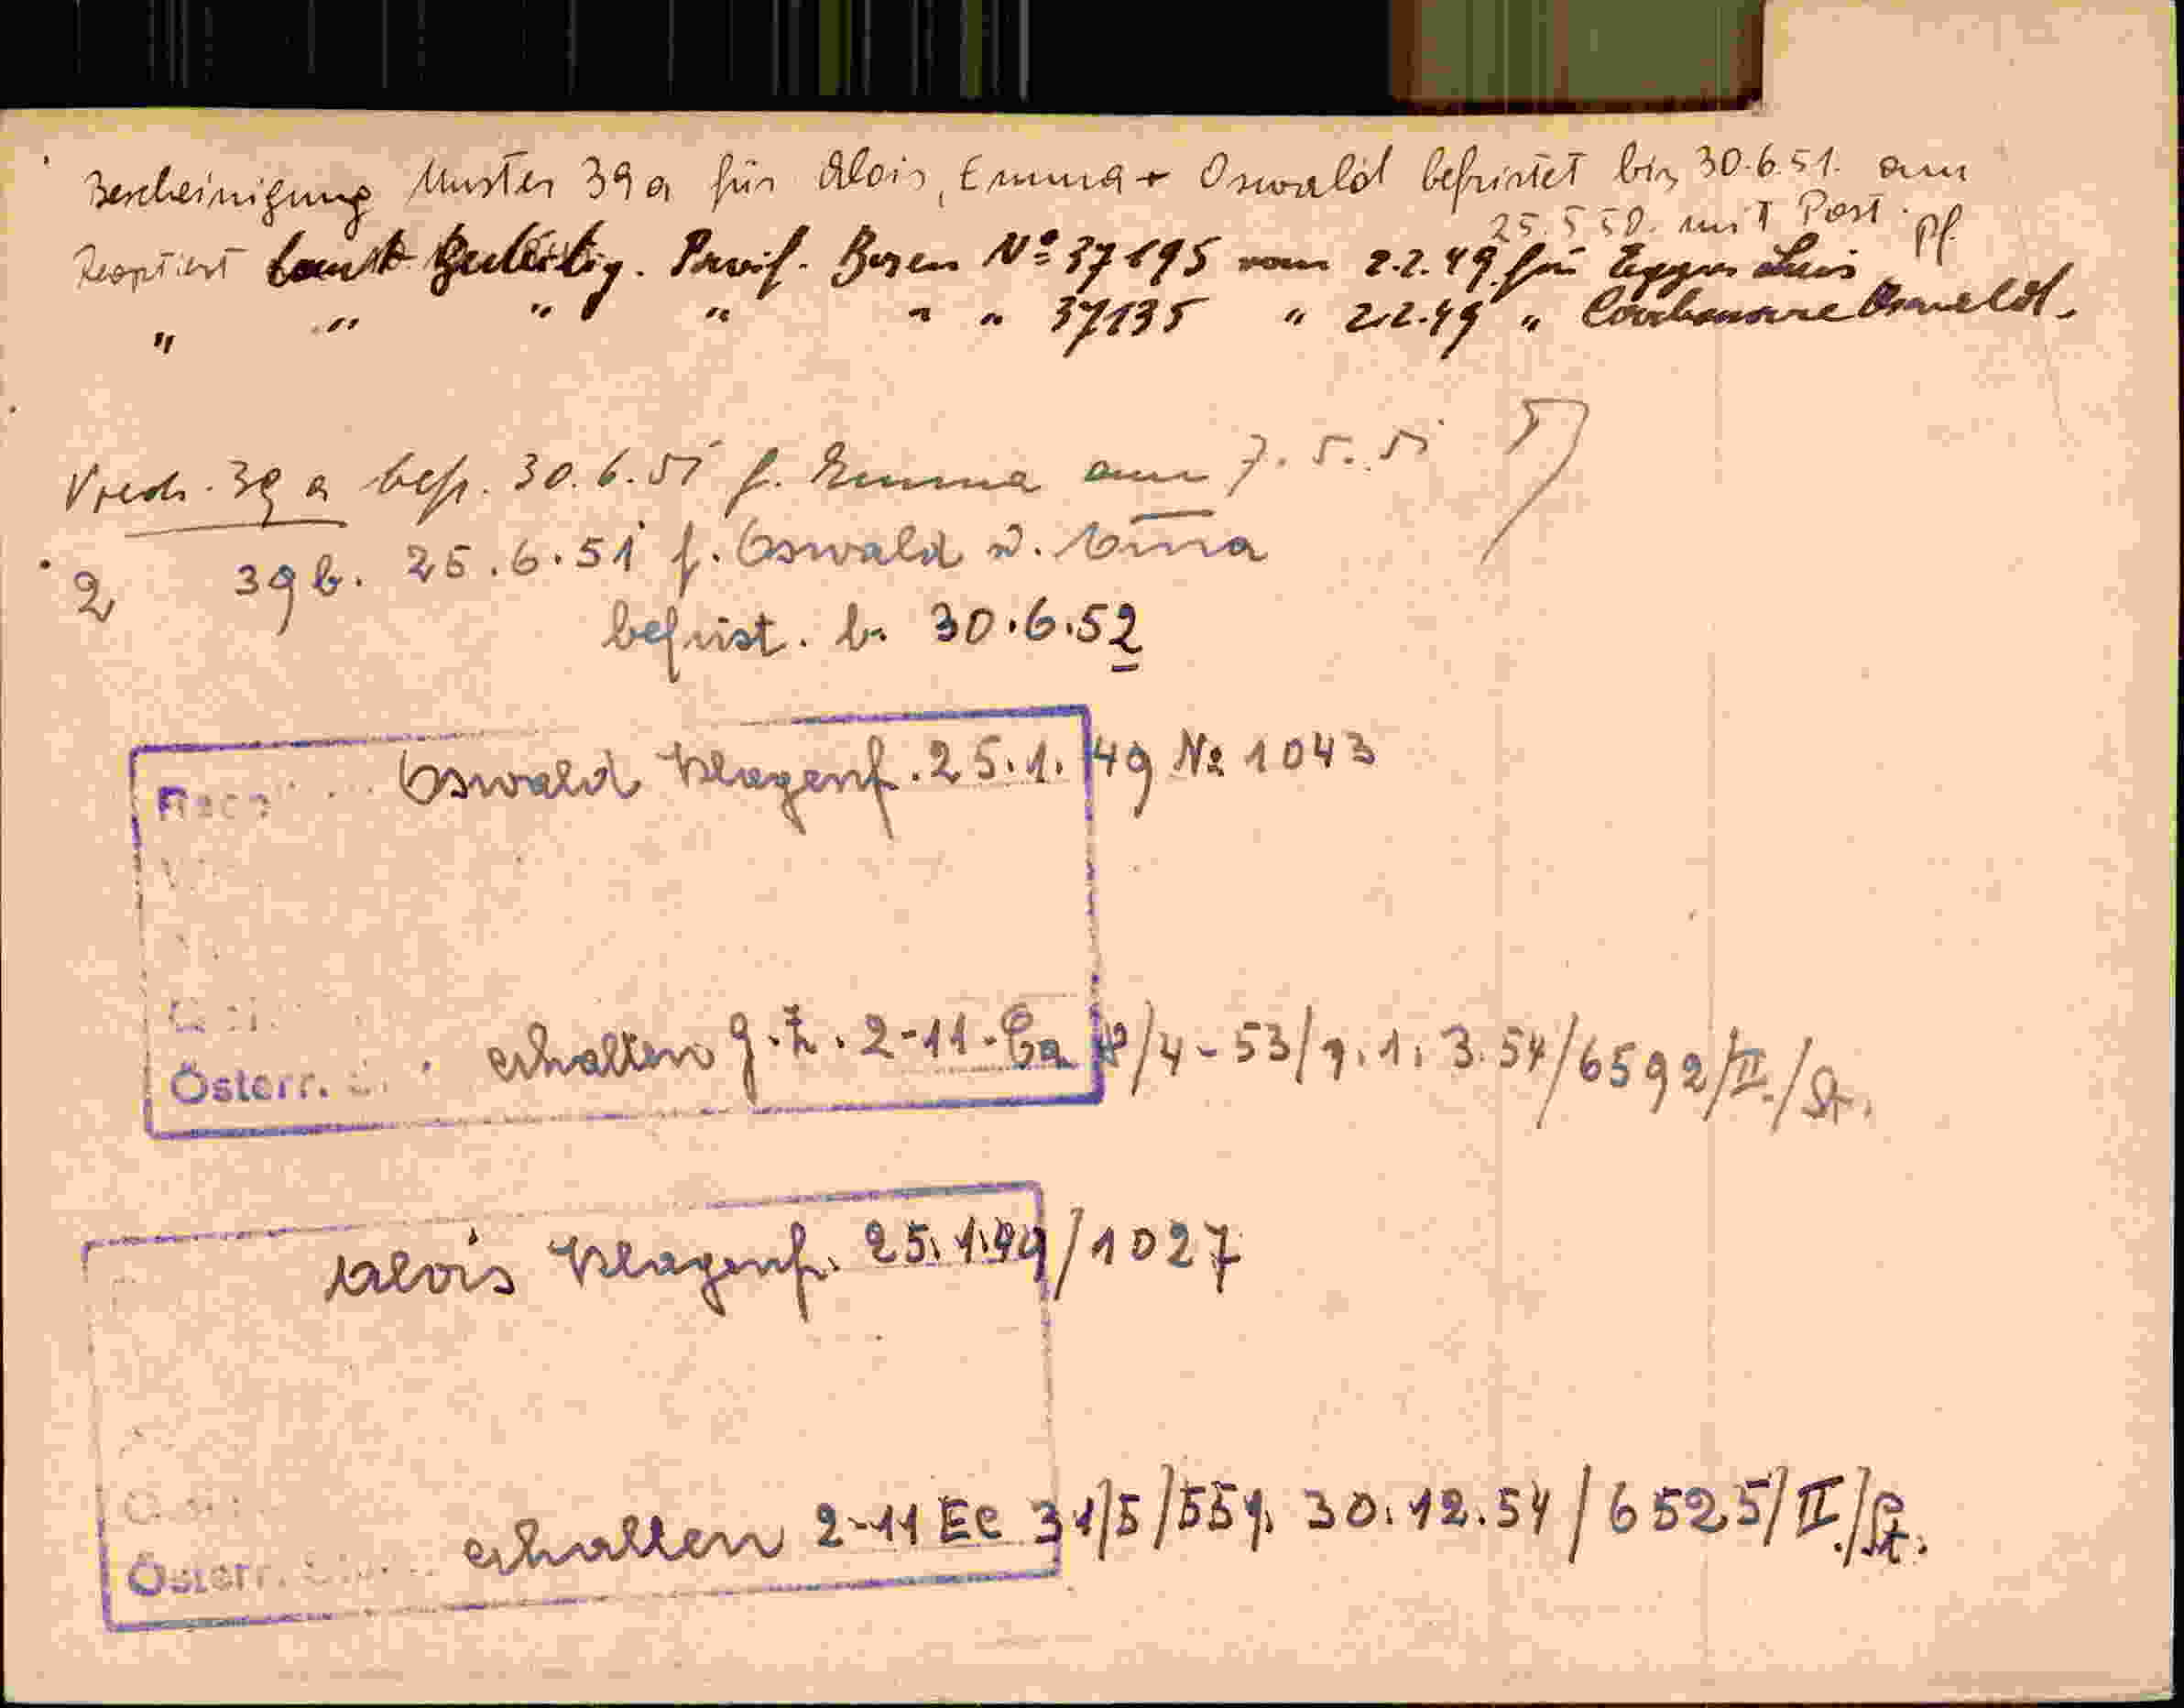 Bescheinigung Muster 39a für Alois, Emma + Oswald befristet bis 30.6.51. am
25.5.50. mit Post. Pf.
Reoptiert laut Bestätig. Präf. Bozen Nº 37195 vom 2.2.49 für Egger Luis
" " " " " " 37135 " 2.2.49 " Carbonare Oswald.
39a befr. 30.6.51 f. Emma am 7.5.51
2 39b. 25.6.51 f. Oswald u.
befrist. b. 30.6.52
Oswald Klagenf. 25.1.49 No 1043
Österr. erhalten g.Z. 2-11-Ca /4-53/ 1.3.54/6592/II./St.
Alois Klagenf. 25.1.49/1027
Österr. erhalten 2-11 Ec 31/5/ 30.12.54/6525/II./St.